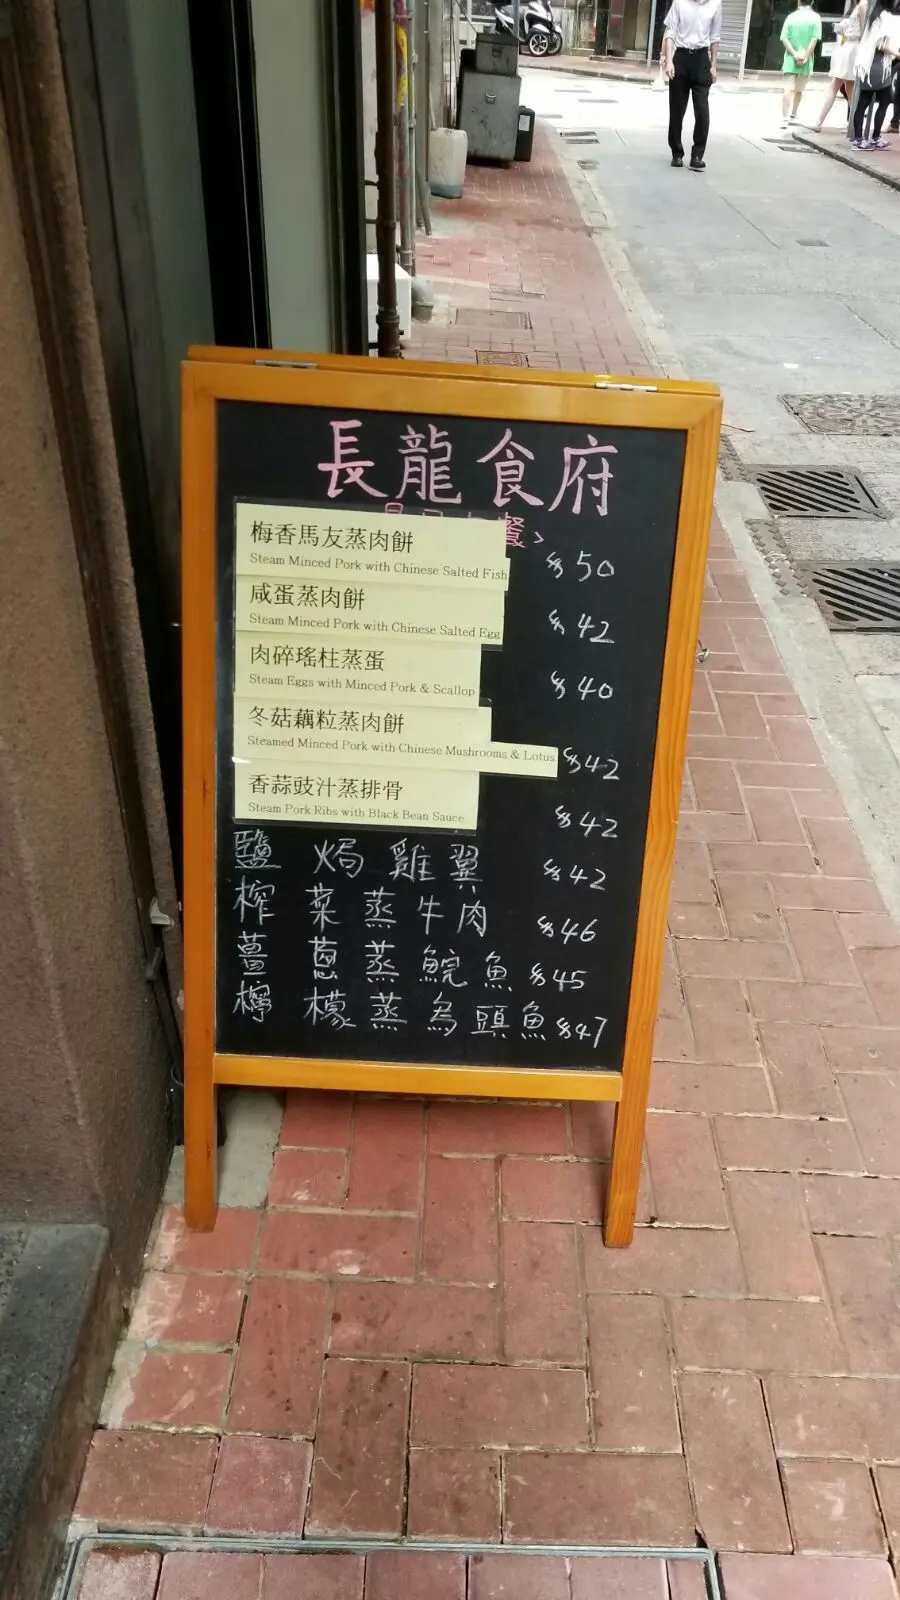 長龍食府
餐>
梅香馬友蒸肉餅
Steam Minced Pork with Chinese Salted Fish
$50
咸蛋蒸肉餅
Steam Minced Pork with Chinese Salted Egg
$42
肉碎瑤柱蒸蛋
Steam Eggs with Minced Pork & Scallop
$40
冬菇藕粒蒸肉餅
Steamed Minced Pork with Chinese Mushrooms & Lotus
$42
香蒜豉汁蒸排骨
Steam Pork Ribs with Black Bean Sauce
$42
鹽焗雞翼 $42
榨菜蒸牛肉 $46
薑蔥蒸鯇魚 $45
檸檬蒸烏頭魚 $47